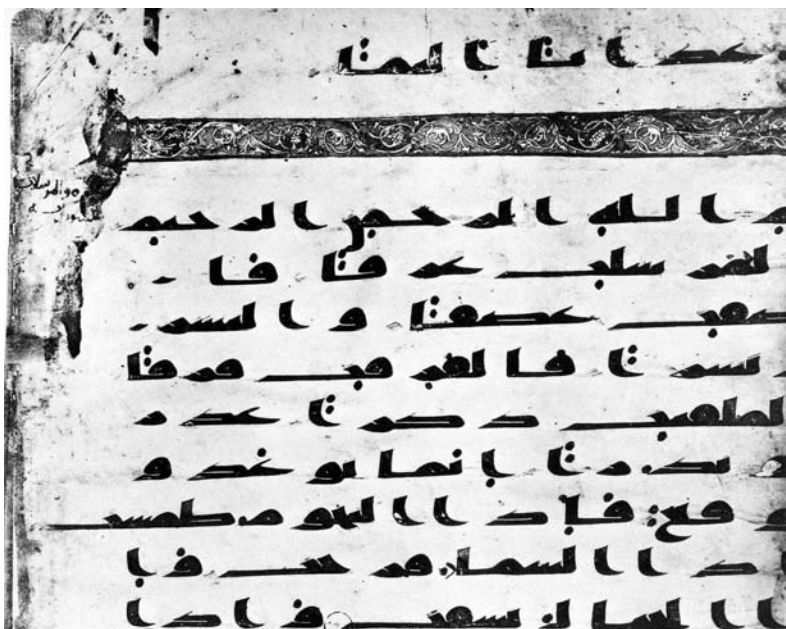 عذابا اليما
والمرسلات
الله الرحمن الرحيم
لمرسلت عرفا فا
لعصفت عصفا والنشر
ت نشرا فالفرقت فرقا
فالملقيت ذكرا عذر
ا او نذرا انما توعدو
ن لوقع فاذا النجوم طمست
واذا السما فرجت وا
ذا الجبال نسفت واذا